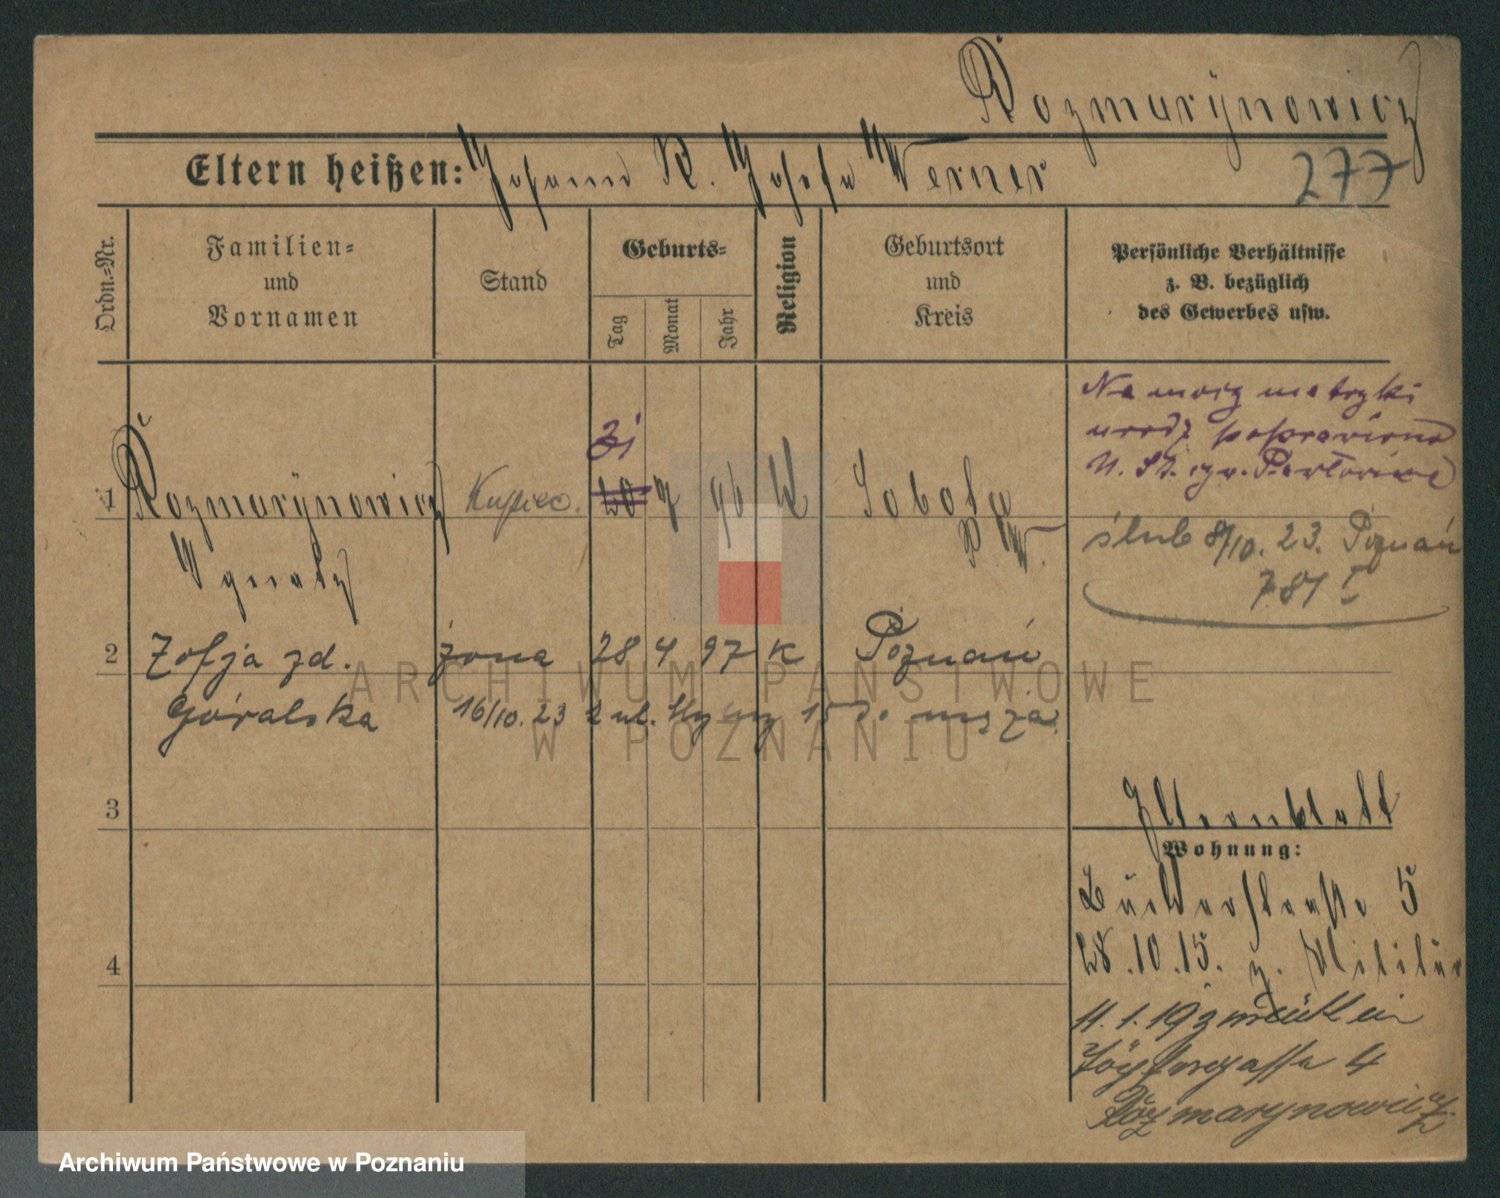 Rozmarynowicz
Eltern heißen: Johann R. Josefa Werner
277
Ordn.-Nr.
Familien-
und
Vornamen
Stand
Geburts-
Tag
Monat
Jahr
Religion
Geburtsort
und
Kreis
Persönliche Verhältnisse
z. B. bezüglich
des Gewerbes usw.
Na mocy metryki
urodz poprawiono
U. St.
31
1 Rozmarynowicz Kupiec. 20 7 96 K Sobota
P. W.
Ignatz
ślub 8/10. 23. Poznań
781 I
2 Zofja zd. żona 28 4 97 K Poznań
Góralska 16/10. 23 z ul. 15
3
Elternblatt
Wohnung:
5
4
28.10.15. z. Militär
11.1.19 zurück in
Töpfergasse 4
Rozmarynowicz
ARCHIWUM PAŃSTWOWE
W POZNANIU
Archiwum Państwowe w Poznaniu